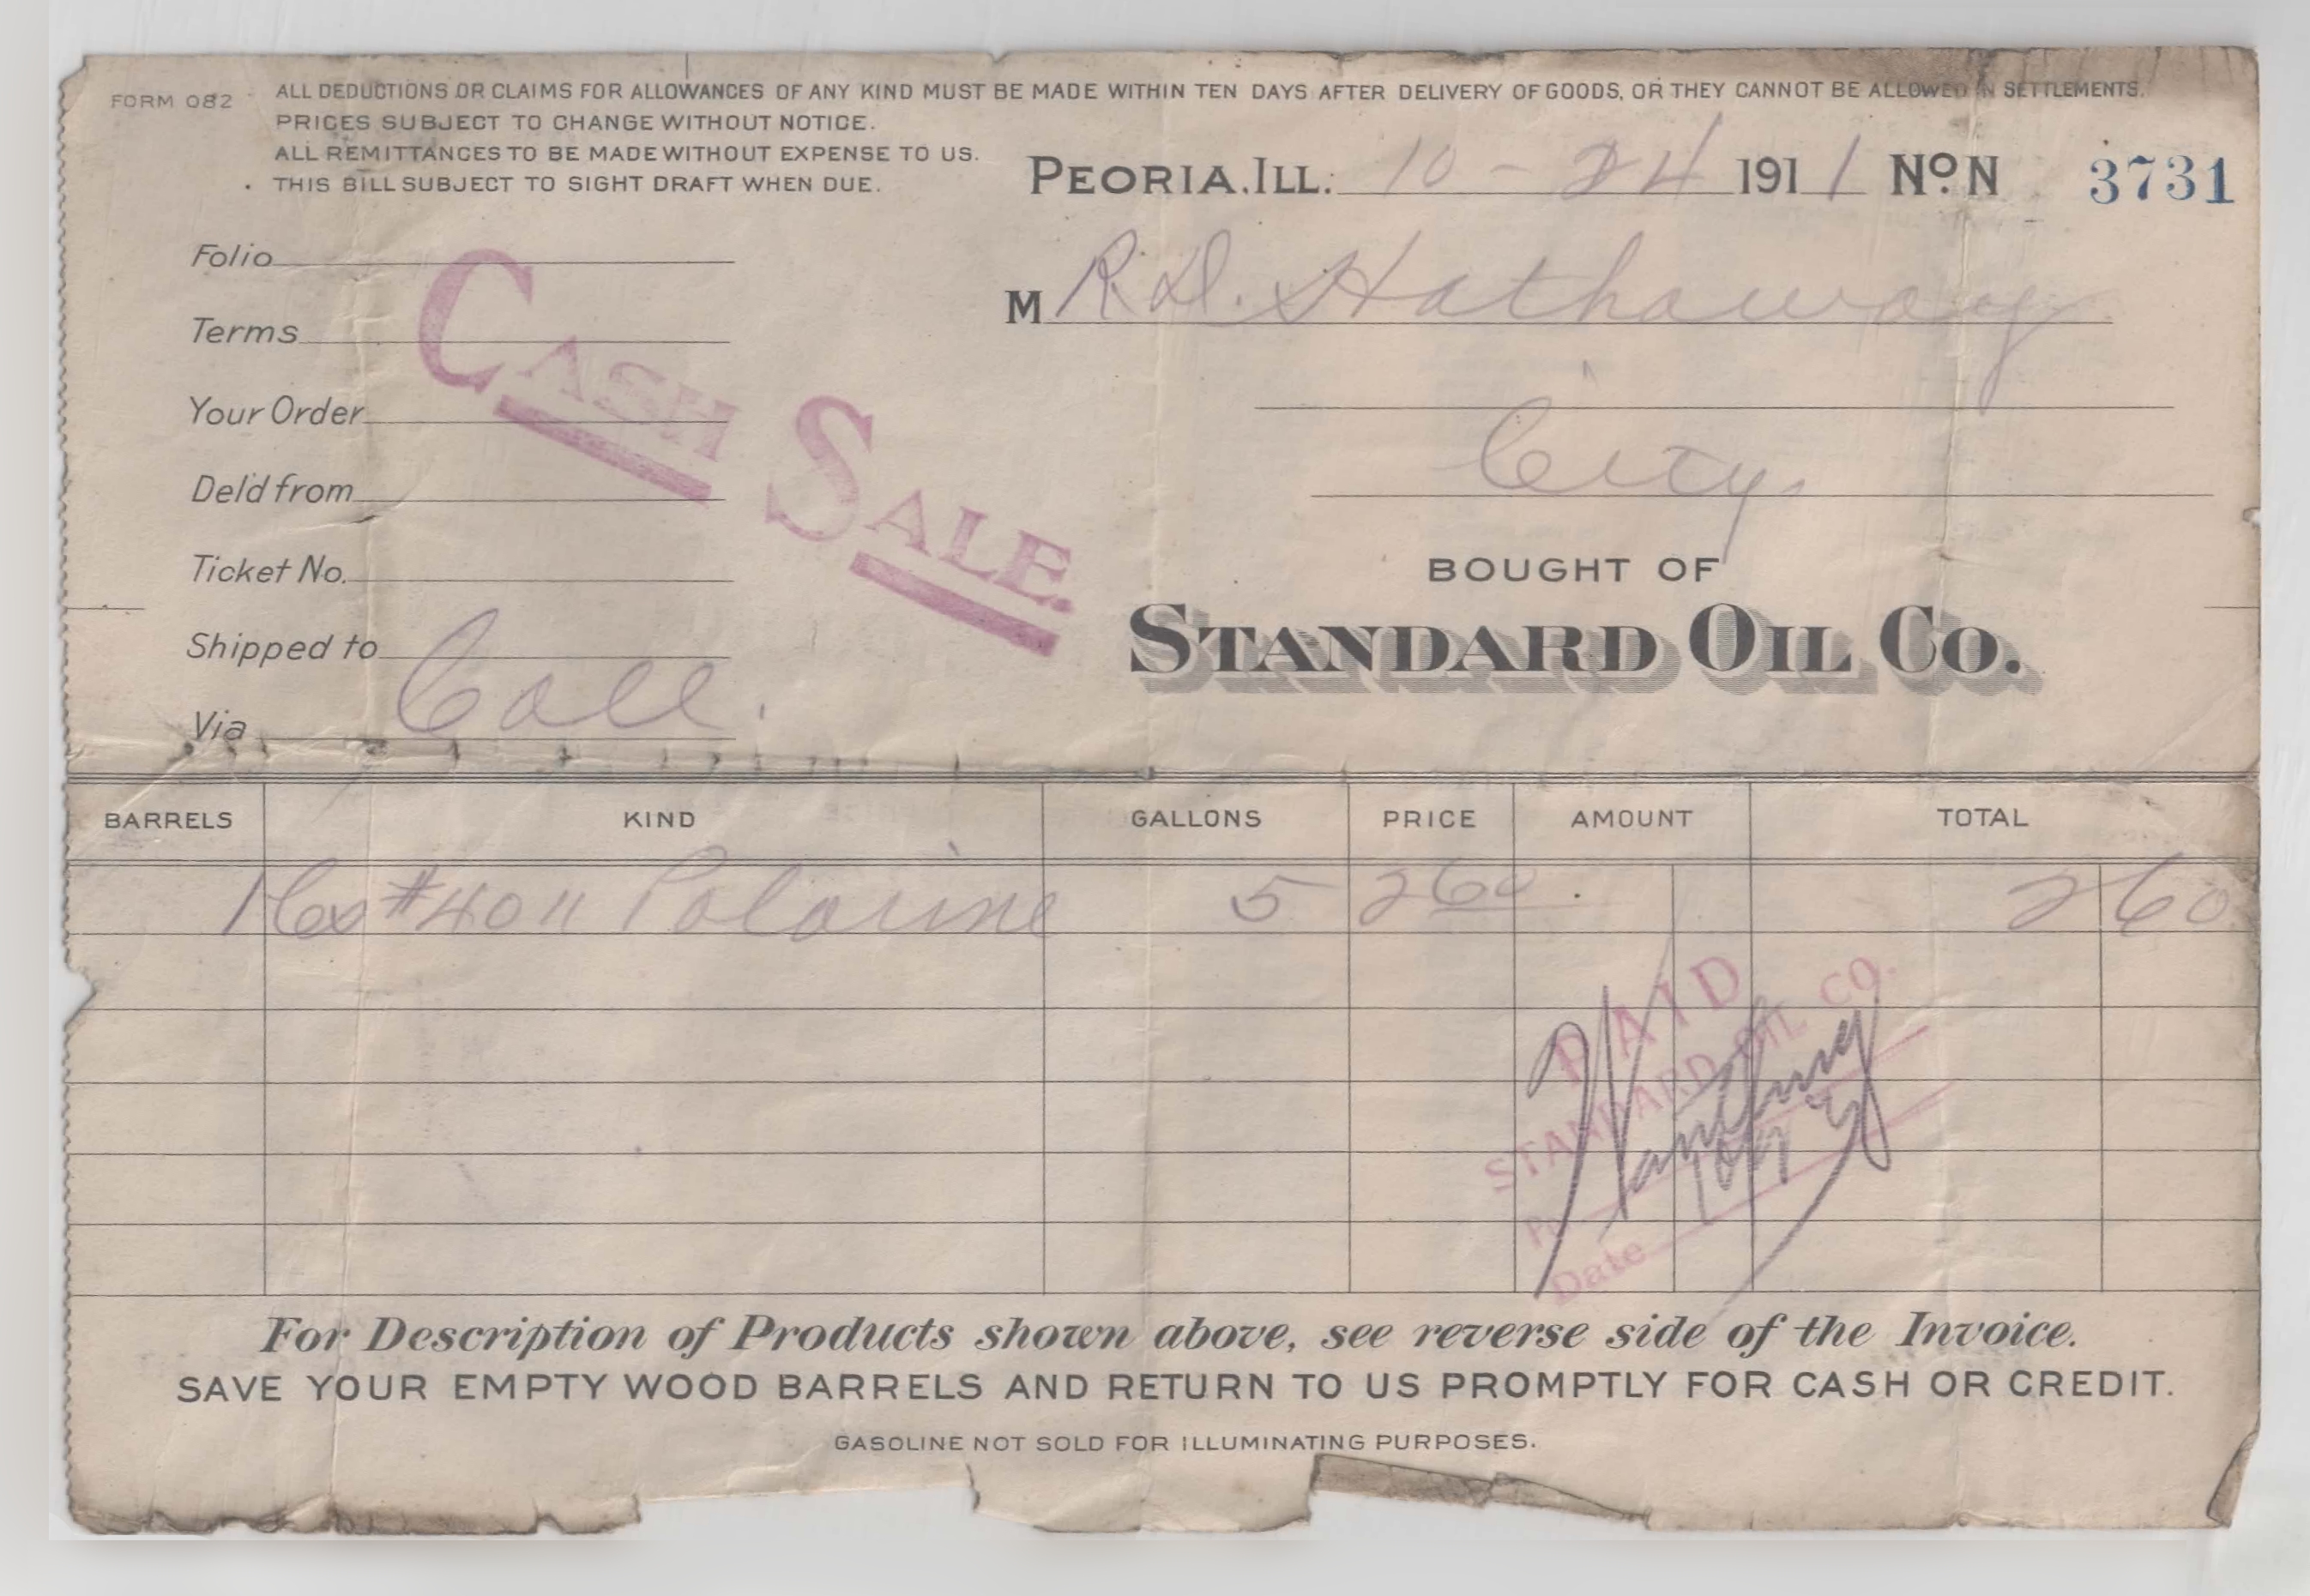 FORM 082
ALL DEDUCTIONS OR CLAIMS FOR ALLOWANCES OF ANY KIND MUST BE MADE WITHIN TEN DAYS AFTER DELIVERY OF GOODS, OR THEY CANNOT BE ALLOWED IN SETTLEMENTS.
PRICES SUBJECT TO CHANGE WITHOUT NOTICE.
ALL REMITTANCES TO BE MADE WITHOUT EXPENSE TO US.
THIS BILL SUBJECT TO SIGHT DRAFT WHEN DUE.
PEORIA, ILL. 10-24 1911 No. N 3731
M R.D. Hathaway
City
Folio
Terms
Your Order
Del'd from
Ticket No.
Shipped to
Via Call.
CASH SALE.
BOUGHT OF
STANDARD OIL CO.
BARRELS KIND GALLONS PRICE AMOUNT TOTAL
1 #40 Polarine 5 2 60 2 60
PAID
STANDARD OIL CO.
Date
For Description of Products shown above, see reverse side of the Invoice.
SAVE YOUR EMPTY WOOD BARRELS AND RETURN TO US PROMPTLY FOR CASH OR CREDIT.
GASOLINE NOT SOLD FOR ILLUMINATING PURPOSES.